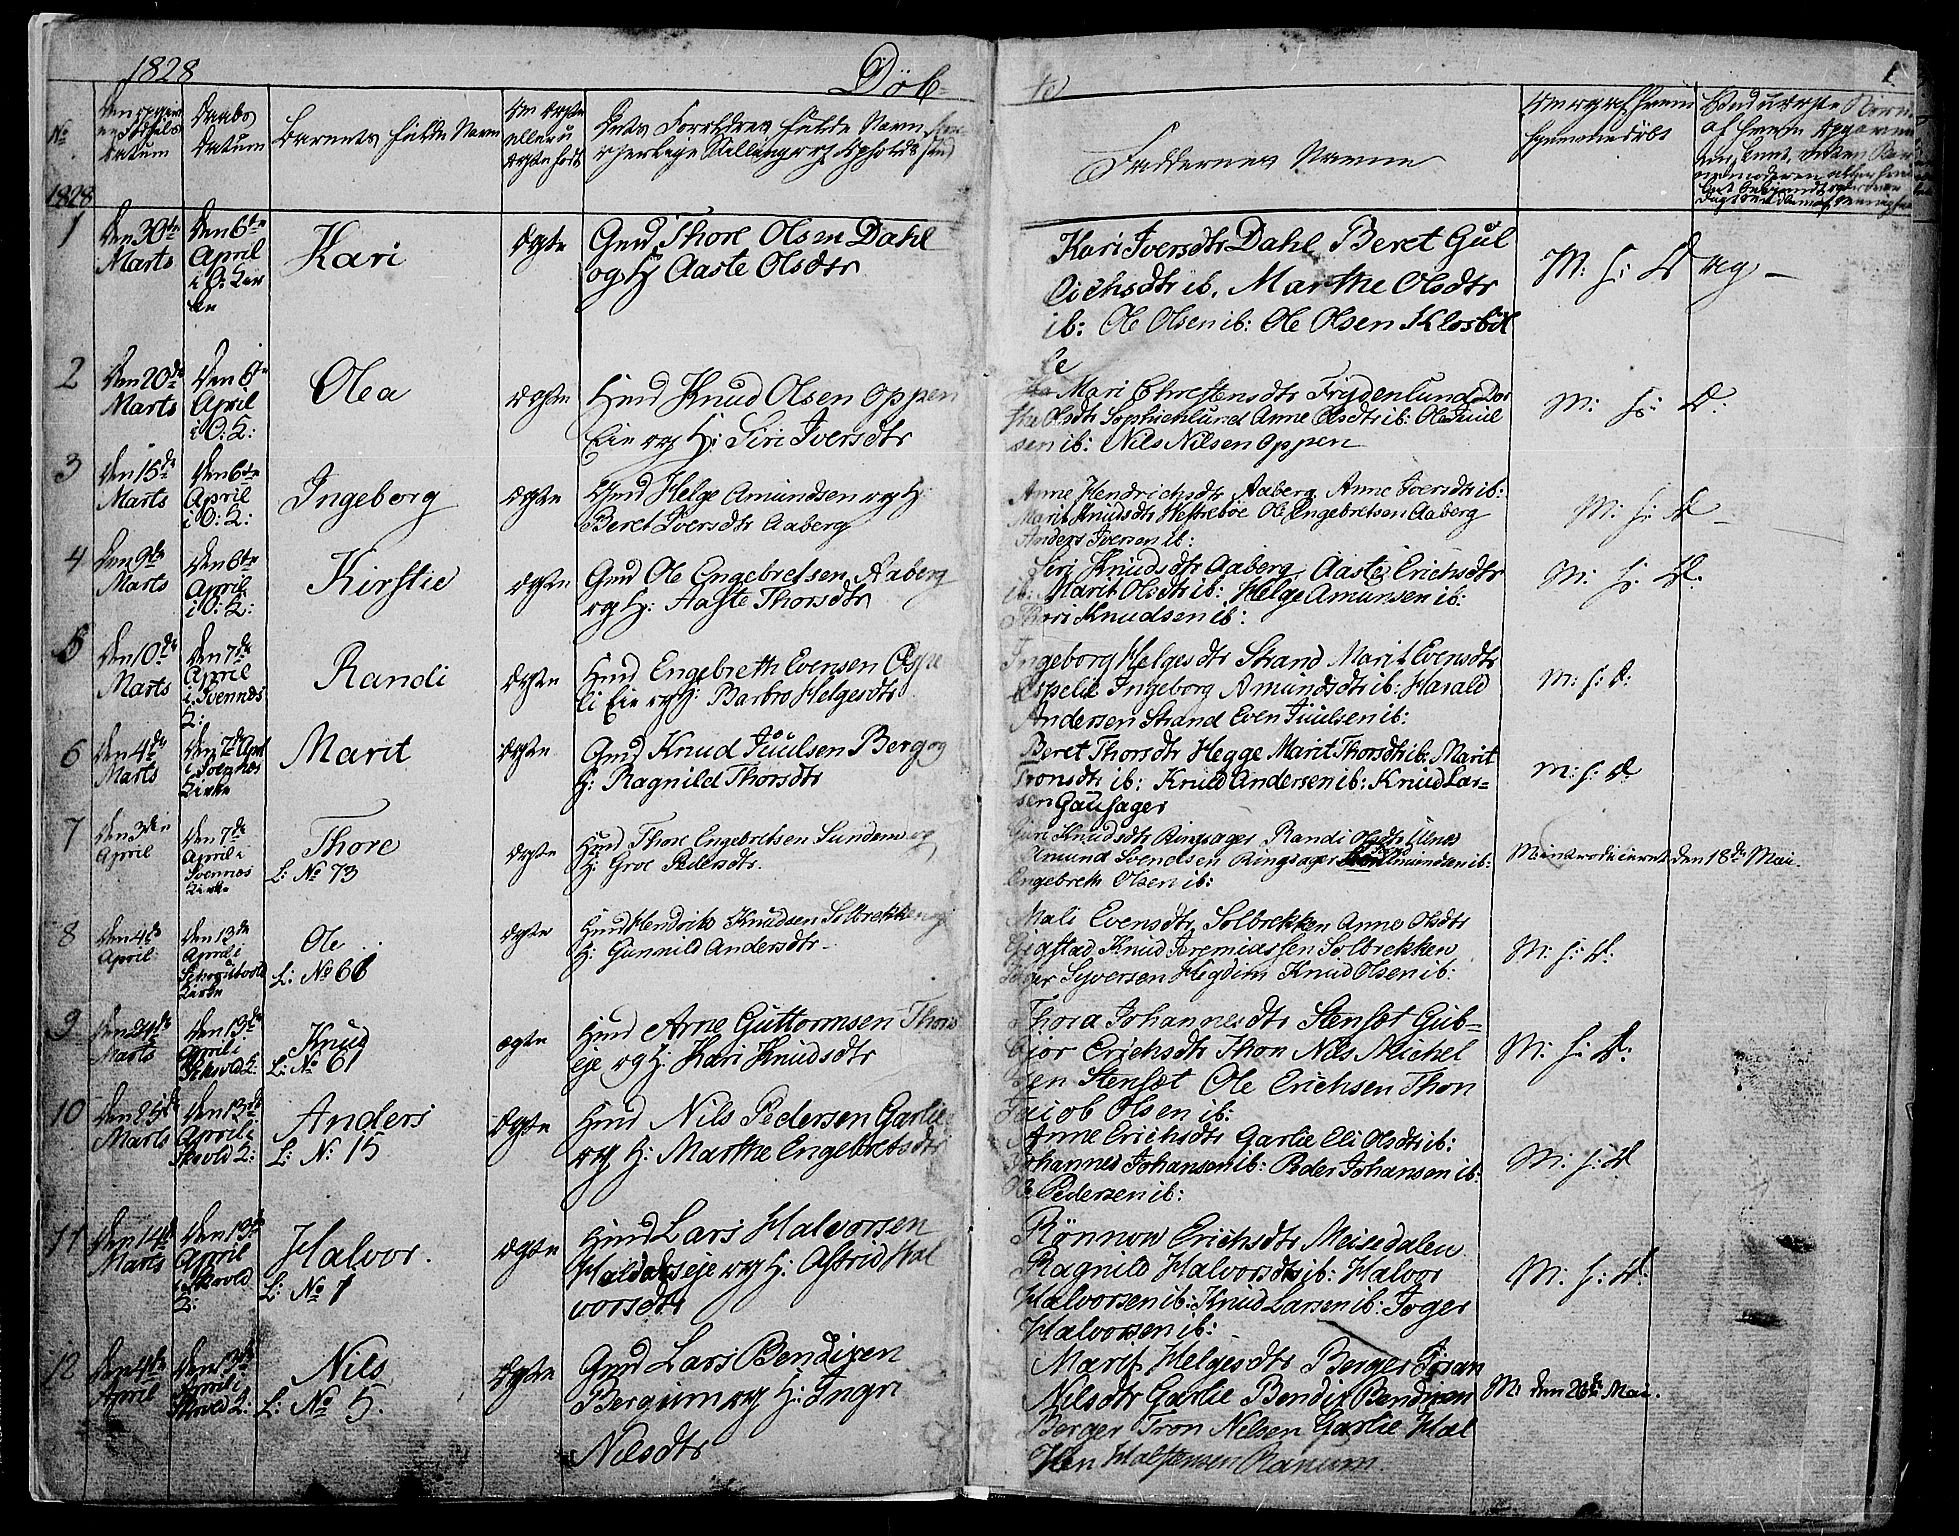 1828 Døb- te 1
No
Barnets fulde Navn
Faddernes Navne
1828
1 Den 30te Marts
Den 6te April i O: Kirken
Kari
ægte
Gmd Thore Olsen Dahl
og H Aaste Olsdtr
Kari Iversdtr Dahl Beret Gul
ib. Marthe Olsdtr
ib: Ole Olsen ib: Ole Olsen Klosbøl
le
M: f: D
2 Den 20de Marts
Den 6te April i O: K:
Olea
ægte
Hmd Knud Olsen Oppen
Eie og H: Siri Iversdtr
Mari Christensdtr Frydenlund Dor
the Olsdtr Sophielund Anne Olsdtr ib: Ole Juul
sen ib: Nils Nilsen Oppen
M: f: D:
3 Den 15de Marts
Den 6te April i O: K:
Ingeborg
ægte
Gmd Helge Amundsen og H:
Beret Iversdtr Aaberg
Anne Hendrichsdtr Aaberg Anne Iversdtr ib:
Marit Knudsdtr Ole Engebretsen Aaberg
Anders Iversen ib:
M: f: D
4 Den 9de Marts
Den 6te April i O: K:
Kirstie
ægte
Gmd Ole Engebretsen Aaberg
og H: Aaste Thorsdtr
Siri Knudsdtr Aaberg, Aaste Erichsdtr
ib: Marit Olsdtr ib: Helge Amunsen ib:
Thori Knudsen ib:
M: f: D:
5 Den 10de Marts
Den 7de April i Svennes K:
Randi
ægte
Hmd Engebreth Evensen Espe
li Eie og H: Barbro Helgesdtr
Ingeborg Helgesdtr Strand Marit Evensdtr
Espelie Ingeborg Amundsdtr ib: Harald
Andersen Strand Even Juulsen ib:
M: f: D:
6 Den 4de Marts
Den 7de April i Svennes Kirke
Marit
ægte
Gmd Knud Juulsen Berg og
H: Ragnild Thorsdtr
Beret Thorsdtr Hegge Marit Thorsdtr ib: Marit
Tronsdtr ib: Knud Andersen ib: Knud Lar-
sen Gausager
M: f: D:
7 Den 3den April
Den 7de April i Svennes Kirke
Thore
L: No 73
ægte
Hmd Thore Engebretsen Sundem og
H: Groe Pedersdtr.
Guri Knudsdtr Ringsager Randi Olsdtr
Amund Svendsen Ringsager Amundsen ib:
Engebreth Olsen ib:
M introduceret den 18de Mai.
8 Den 4de April
Den 13de April i Skrutvold Kirke
Ole
L: No 66
ægte
Hmd Hendrik Knudsen Solbrekken og
H: Gunnild Andersdtr
Mali Evensdtr Solbrekken Anne Olsdtr
Knud Jeremiassen Solbrekken
Syversen Hegdim Knud Olsen ib:
M: f: D:
9 Den 24de Marts
Den 13de April i
Knud
L: No 61
ægte
Hmd Arne Guttormsen Thons
eje og H: Kari Knudsdtr
Thora Johannesdtr Stensæt Gub-
bjør Erichsdtr Thon Nils Michel
sen Stensæt Ole Erichsen Thon
Jacob Olsen ib:
M: f: D:
10 Den 25de Marts
Den 13de April i Skvold K:
Anders
L: No: 15
ægte
Hmd Nils Pedersen Garlie
og H: Marthe Engebretsdtr
Anne Erichsdtr Garlie Eli Olsdtr ib:
Johannes Johansen ib: Peder Johansen ib:
Ole Pedersen ib:
M: f: D
11 Den 14de Marts
Den 13de April i Skvold K:
Halvor.
L: No 1
ægte
Hmd Lars Halvorsen
og H: Astrid Hal
vorsdtr
Rønnow Erichsdtr Meisedalen
Ragnild Halvorsdtr ib: Halvor
Halvorsen ib: Knud Larsen ib: Joger
Halvorsen ib:
M: f: D:
12 Den 4de April
Den 13de April i Skvold K:
Nils
L: No 5.
ægte
Gmd Lars Bendixen
Bergum og H: Ingri
Nilsdtr
Marit Helgesdtr Berger Jøran
Nilsdtr Garlie Bendix Bendixen
Berger Tron Nilsen Garlie Hal
sten Halstensen Ranum.
M: den 26de Mai.